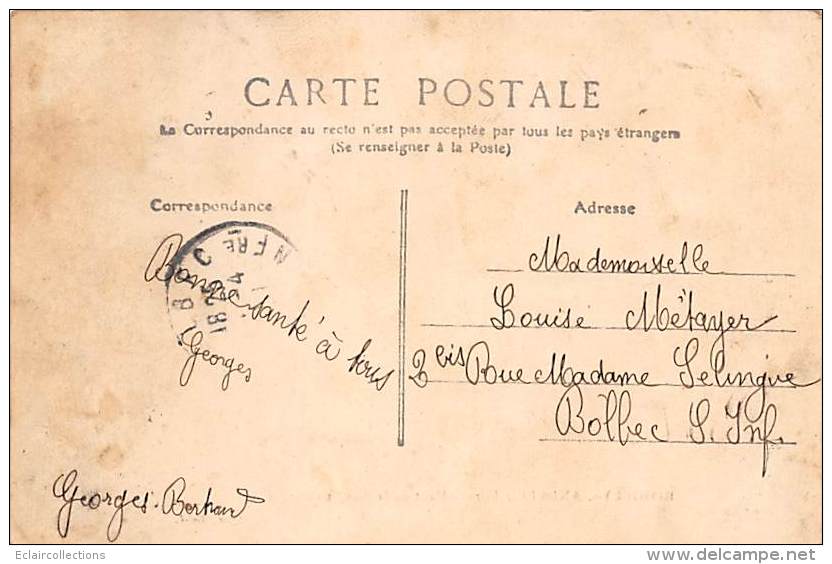 CARTE POSTALE
La Correspondance au recto n'est pas acceptée par tous les pays étrangers
(Se renseigner à la Poste)
Correspondance
Adresse
Bonne santé à tous
Georges
Georges
Mademoiselle
Louise Métayer
2 bis Rue Madame Selingue
Bolbec S. Inf.
Eclaircollections
delcampe.net